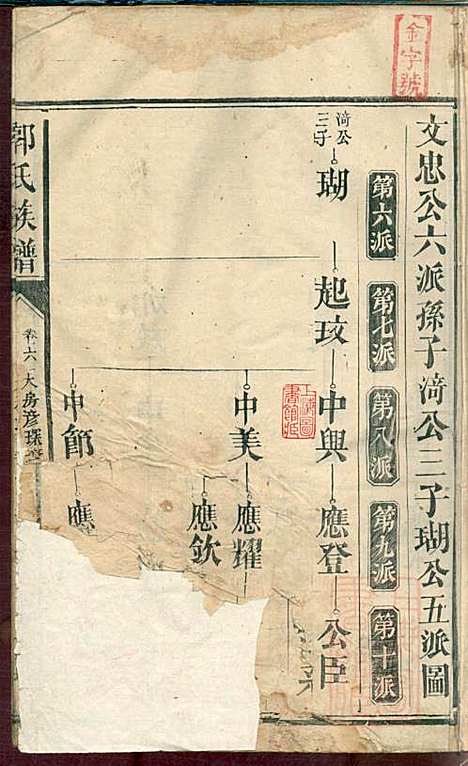 金字號
文忠公六派孫子漪公三子瑚公五派圖
第六派
第七派
第八派
第九派
第十派
漪公三子
瑚
起玟
中興
應登
公臣
中美
應耀
應欽
中節
應
郭氏族譜
卷六
大房彦琛
上海圖書館